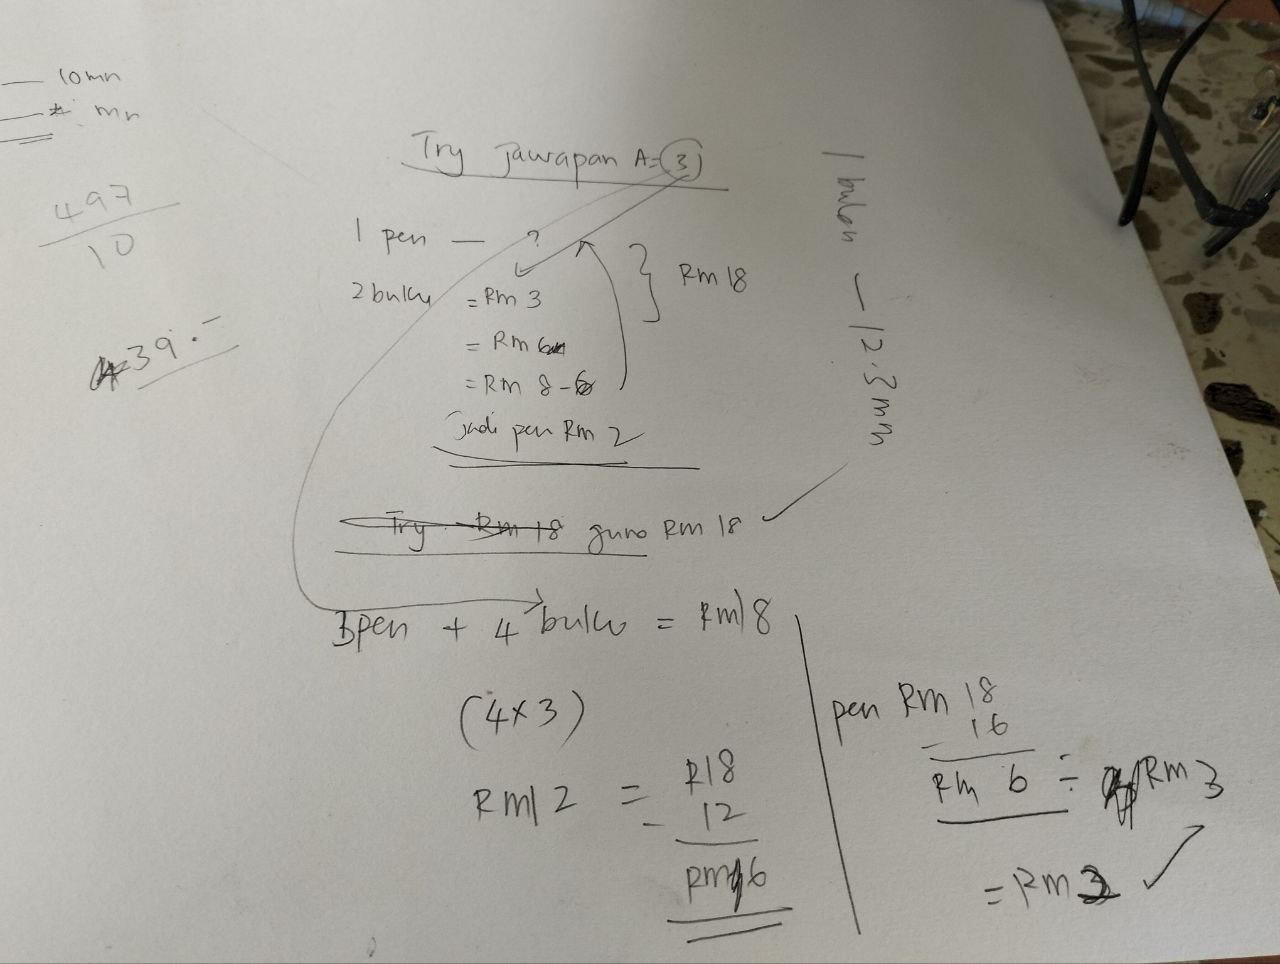 10mn
mn
497
10
39.-
Try jawapan A=3
1 pen — ?
2 buku = Rm 3
= Rm 6
= Rm 8-6
Rm 18
jadi pen Rm 2
Try Rm 18 guno Rm 18
1 bulan — 12.3 mn
3pen + 4 buku = Rm18
(4x3)
Rm12 = R18
- 12
Rm 6
pen Rm 18
- 16
Rm 6 ÷ Rm 3
= Rm